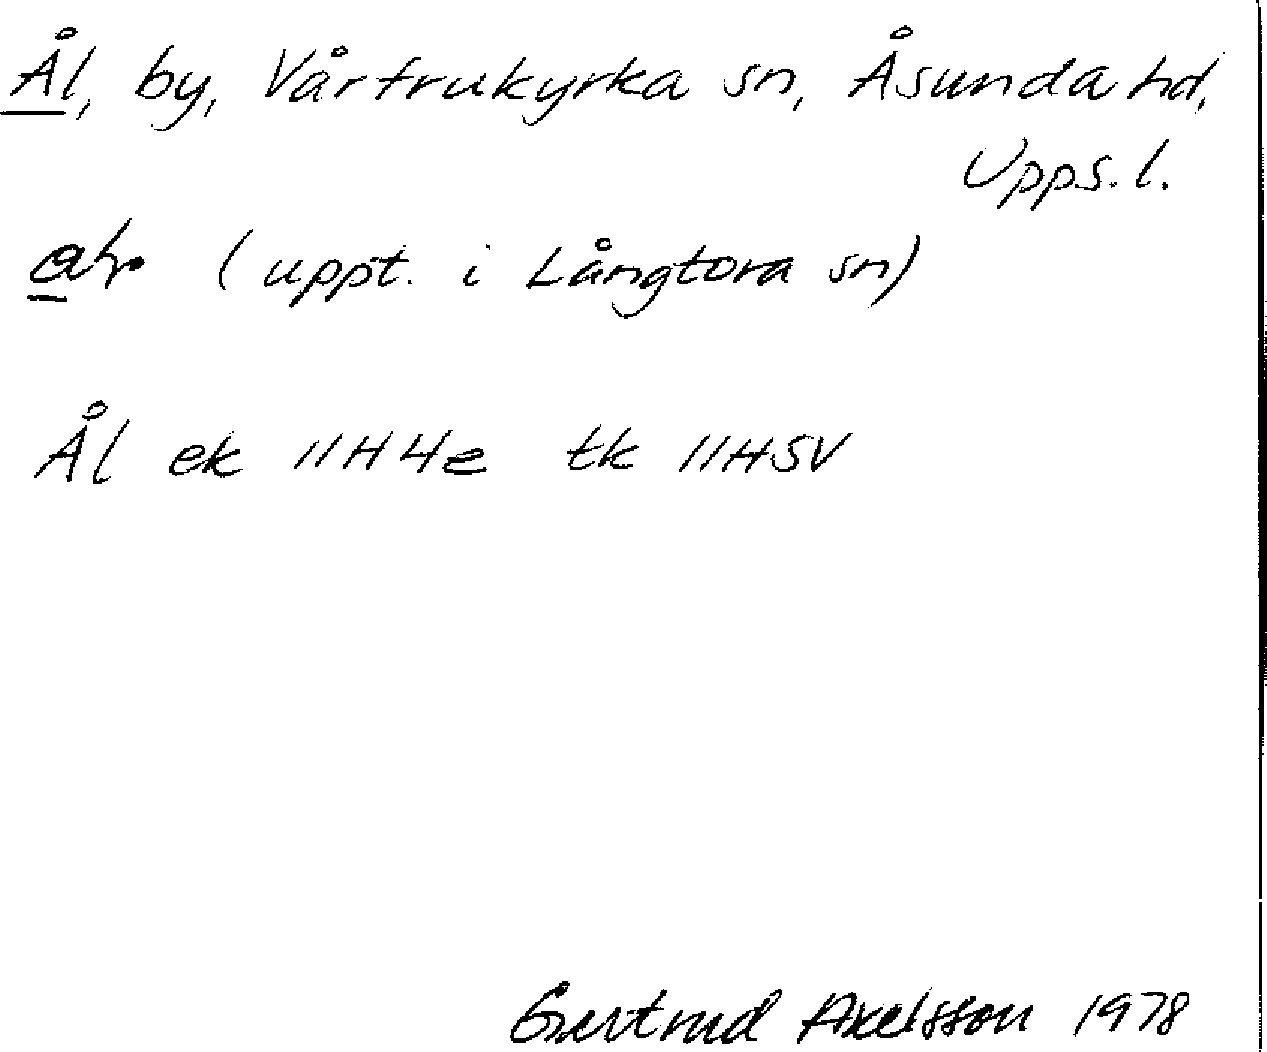 Ål, by, Vårfrukyrka sn, Åsunda hd,
Upps. l.
(uppt. i Långtora sn)
Ål ek 11H4e tk 11HSV
Gertrud Axelsson 1978